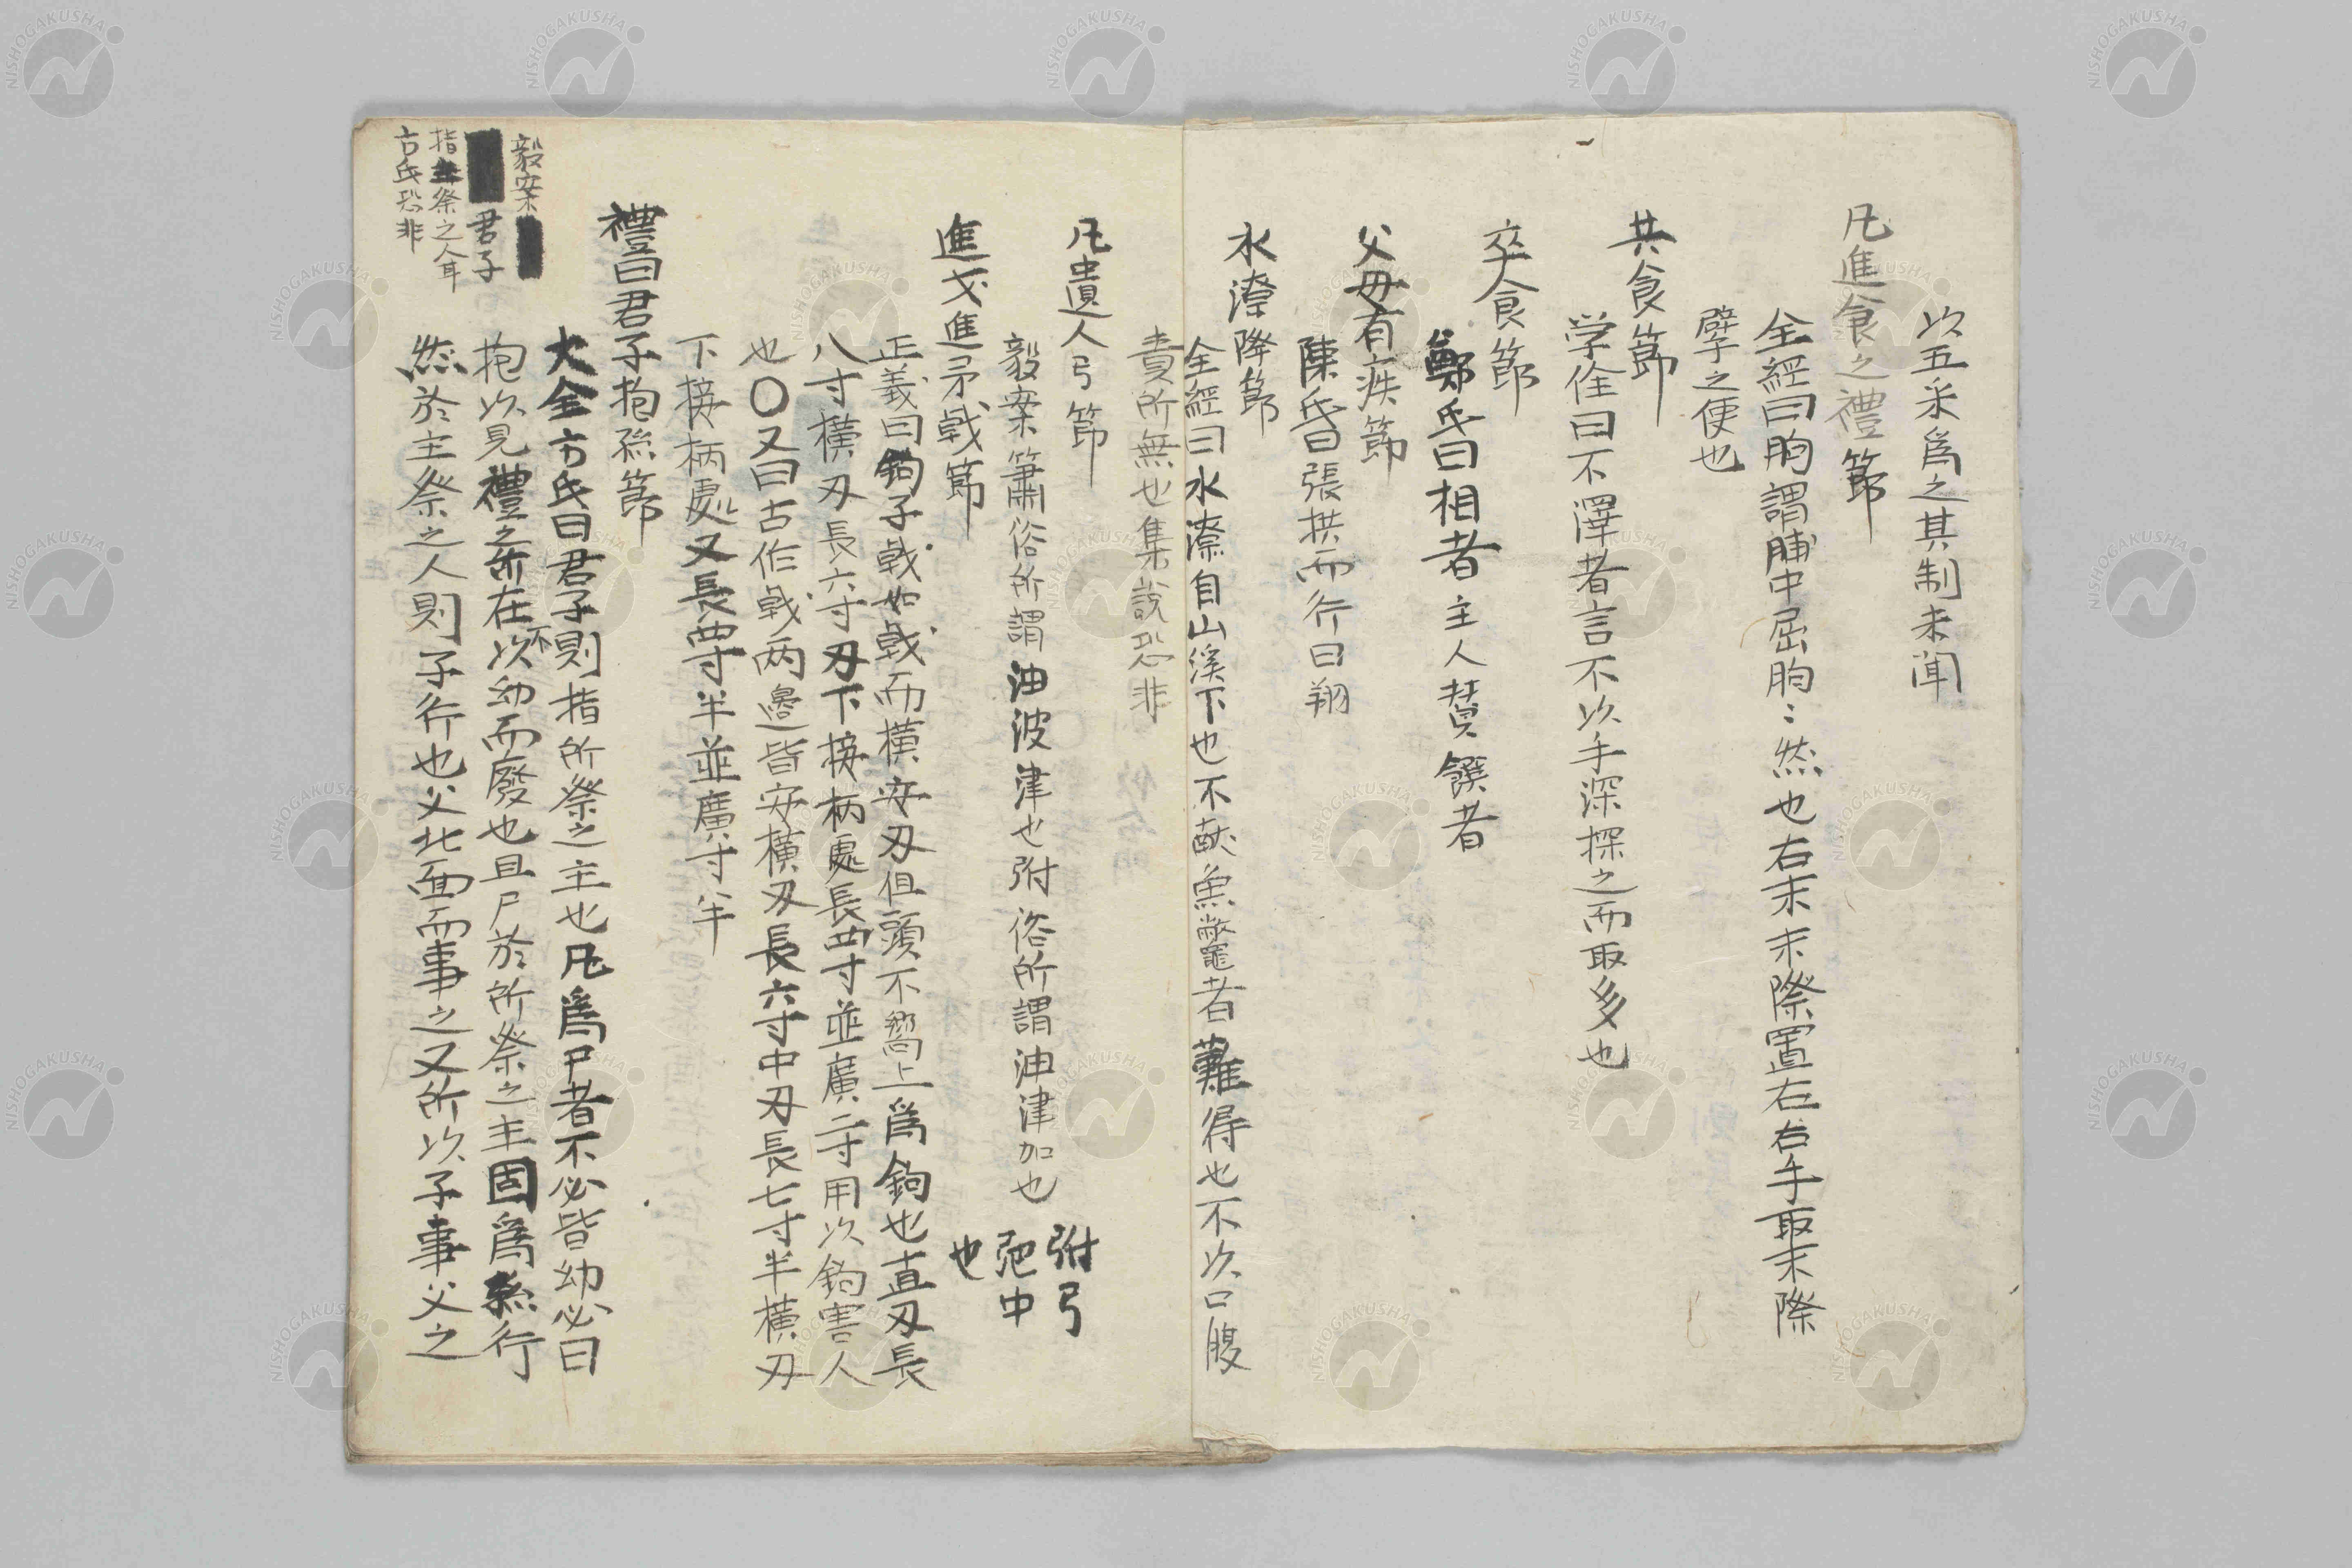 以五采爲之其制未聞
凡進食之禮節
全經曰朐謂脯中屈朐〻然也右末末際置右右手取末際
擘之便也
共食節
学佺曰不澤者言不以手深探之而取多也
卒食節
鄭氏曰相者主人賛饌者
父母有疾節
陳氏曰張拱而行曰翔
水潦降節
全經曰水潦自山溪下也不献魚鼈者難得也不以口腹
責所無也集説恐非
凡遺人弓節
毅案簫俗所謂油波津也弣俗所謂油津加也
弣弓
弝中
也
進戈進矛戟節
正義曰鉤子戟如戟而橫安刃但頭不嚮上爲鉤也直刃長
八寸橫刃長六寸刃下接柄處長四寸並廣二寸用以鉤害人
也〇又曰古作戟两邉皆安橫刃長六寸中刃長七寸半橫刃
下接柄處又長四寸半並廣寸半
禮曰君子抱孫節
大全方氏曰君子則指所祭之主也凡爲尸者不必皆幼必曰
抱以見禮之所在不以幼而廢也且尸於所祭之主固爲孫行
然於主祭之人則子行也父北面而事之又所以子事父之
毅案
君子
指祭之人耳
方氏恐非
NISHOGAKUSHA